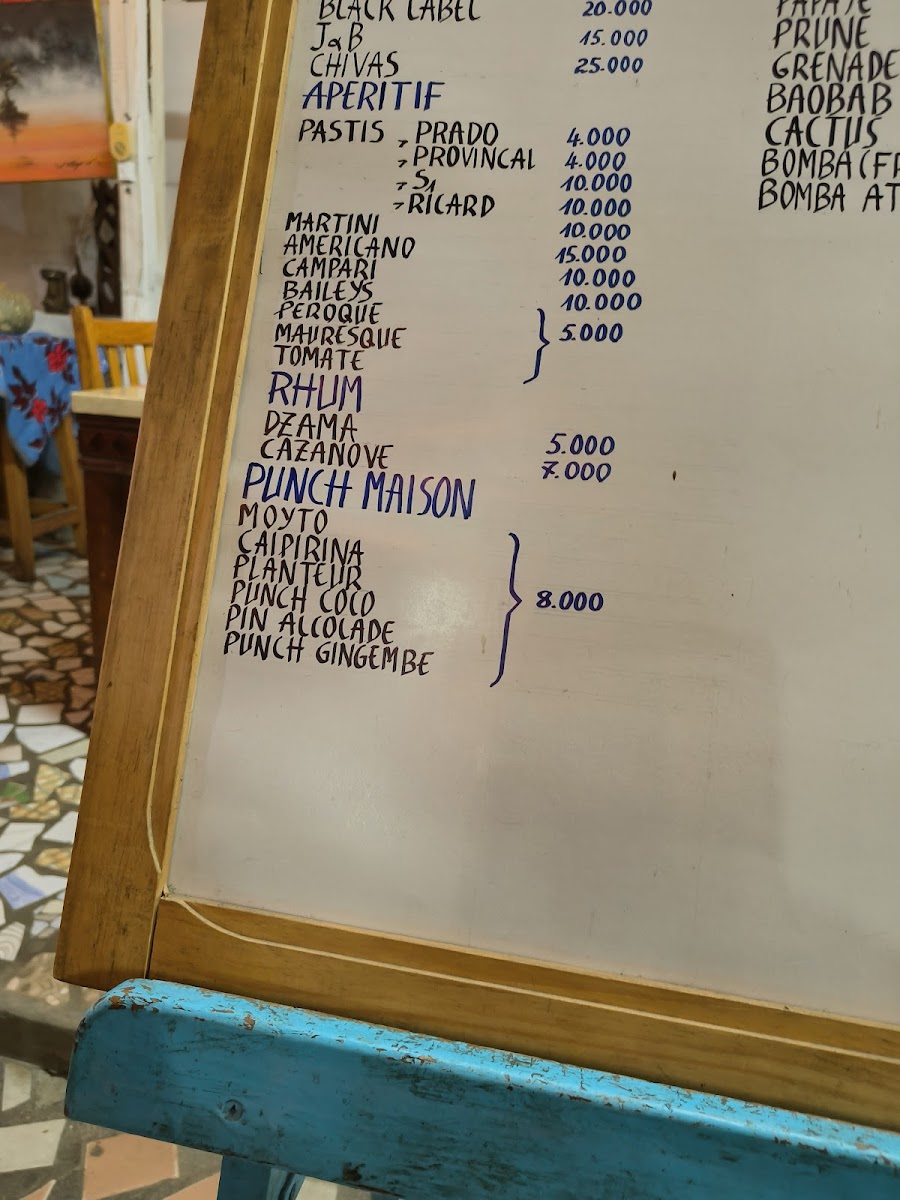 BLACK LABEL 20.000
J&B 15.000
CHIVAS 25.000
APERITIF
PASTIS , PRADO 4.000
, PROVINCAL 4.000
, 51 10.000
, RICARD 10.000
MARTINI 10.000
AMERICANO 15.000
CAMPARI 10.000
BAILEYS 10.000
PEROQUE
MAURESQUE } 5.000
TOMATE
RHUM
DZAMA 5.000
CAZANOVE 7.000
PUNCH MAISON
MOYTO
CAIPIRINA
PLANTEUR
PUNCH COCO } 8.000
PIN ALCOLADE
PUNCH GINGEMBE
PRUNE
GRENADE
BAOBAB
CACTUS
BOMBA (FR
BOMBA AT